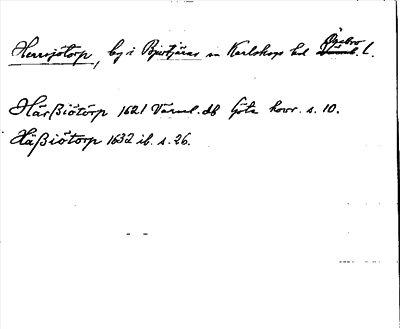 Herrsjötorp, by i Bjurtjärns sn Karlskoga hd Örebro l.
Härßiötörp 1621 Värml. db Göta hovr. s. 10.
Häßiötorp 1632 ib. s. 26.